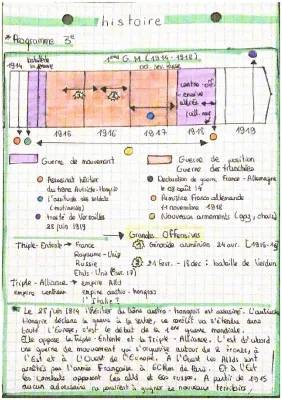 histoire
* Programme 3e
1ère G.M (1914-1918)
1914
1915
1916
1917
1918
1919
Guerre de mouvement
Guerre de position
Guerre des tranchées
Assassinat héritier
du trône Austro-Hongrie
Déclaration de guerre, France-Allemagne
le 03 août 14
Armistice Franco allemande
11 novembre 1918
(mutineries)
traité de Versailles
28 juin 1919
Nouveaux armements (gaz, chars)
Grandes Offensives
Triple-Entente → France
Royaume-Uni
Russie
Etats-Unis
Génocide arménien 24 avr. (1915-16)
21 Fev. - 18 dec : bataille de Verdun
Triple-Alliance → empire Alld
empire austro-hongrois
l'Italie ?
Le 28 juin 1914 l'héritier du trône austro-hongrois est assassiné. L'autriche
Hongrie déclare la guerre à la serbie, ce conflit va s'étendre dans
toute l'Europe, c'est le début de la 1ère guerre mondiale.
Elle oppose la Triple-Entente et la Triple-Alliance. C'est d'abord
une guerre de mouvement qui s'organise autour de 2 fronts, à
l'Est et à l'Ouest de l'Europe. A l'Ouest les Allds sont
arrêtés par l'armée Française à 60Km de Paris. Et à l'Est
les combats opposent les allds et les russes. A partir de 1915
aucun adversaire ne parvient à gagner de nouveaux territoires.